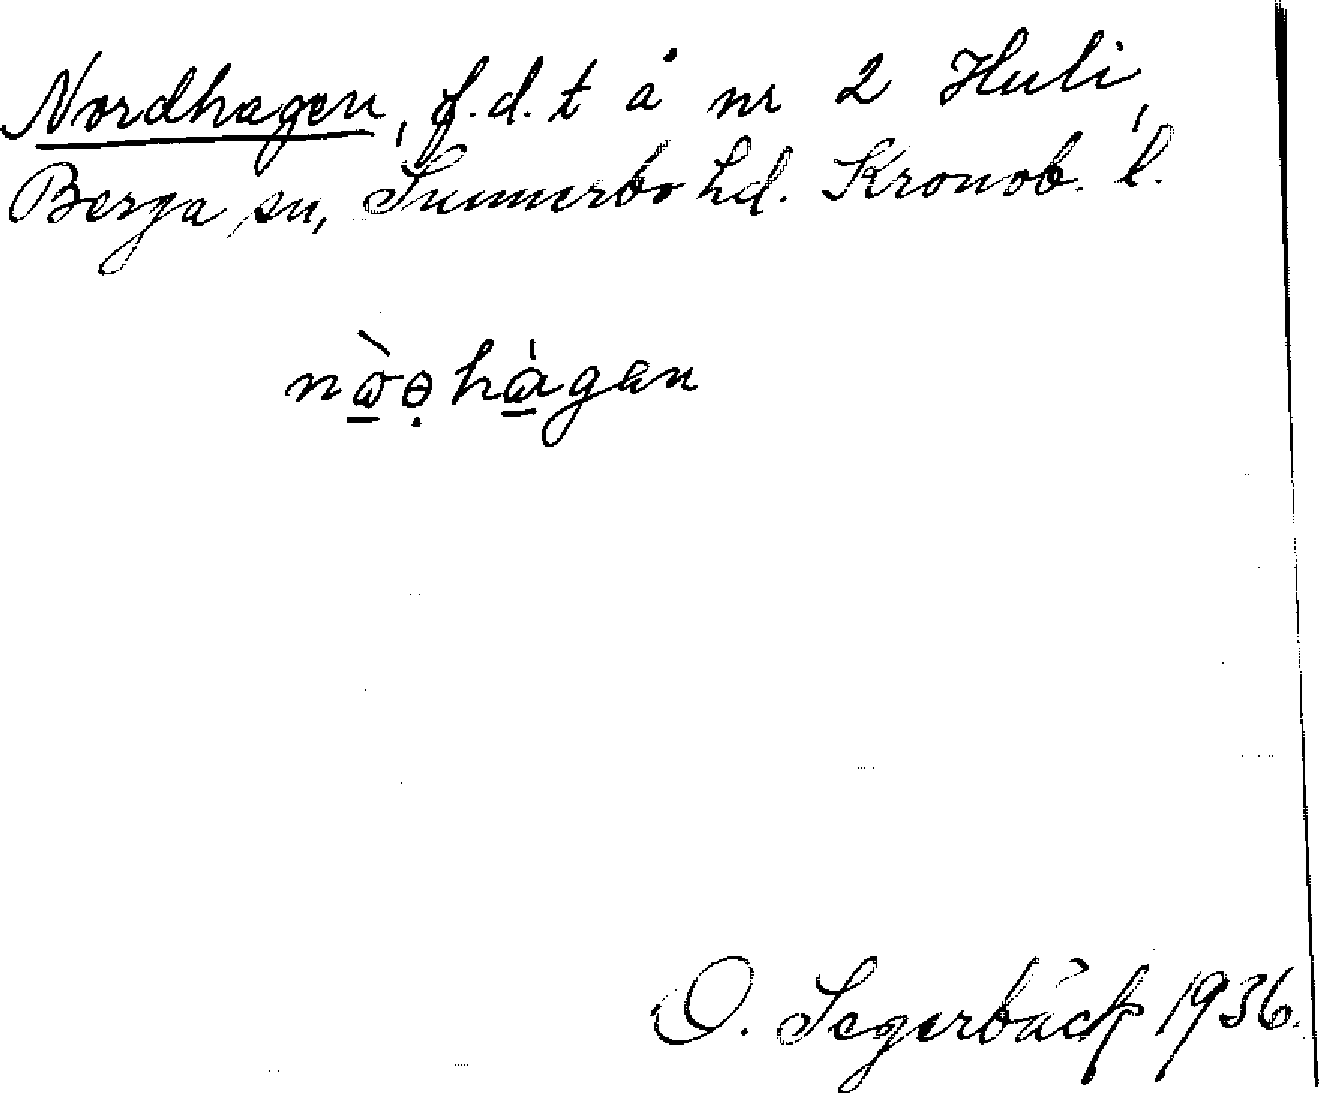 Nordhagen, f.d.t å nr 2 Huli,
Berga sn, Sunnerbo hd. Kronob. l.
O. Segerbäck 1936.